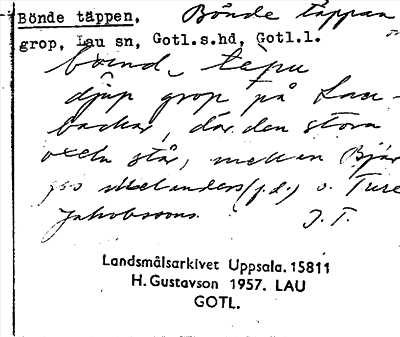 Bönde täppen. Bönde täppan
grop, Lau sn, Gotl.s.hd, Gotl.l.
djup grop på Lau-
backar, där den stora
oxeln står, mellan Björ
s o. Ture
Jakobssons. J.T.
Landsmålsarkivet Uppsala. 15811
H. Gustavson 1957. LAU
GOTL.